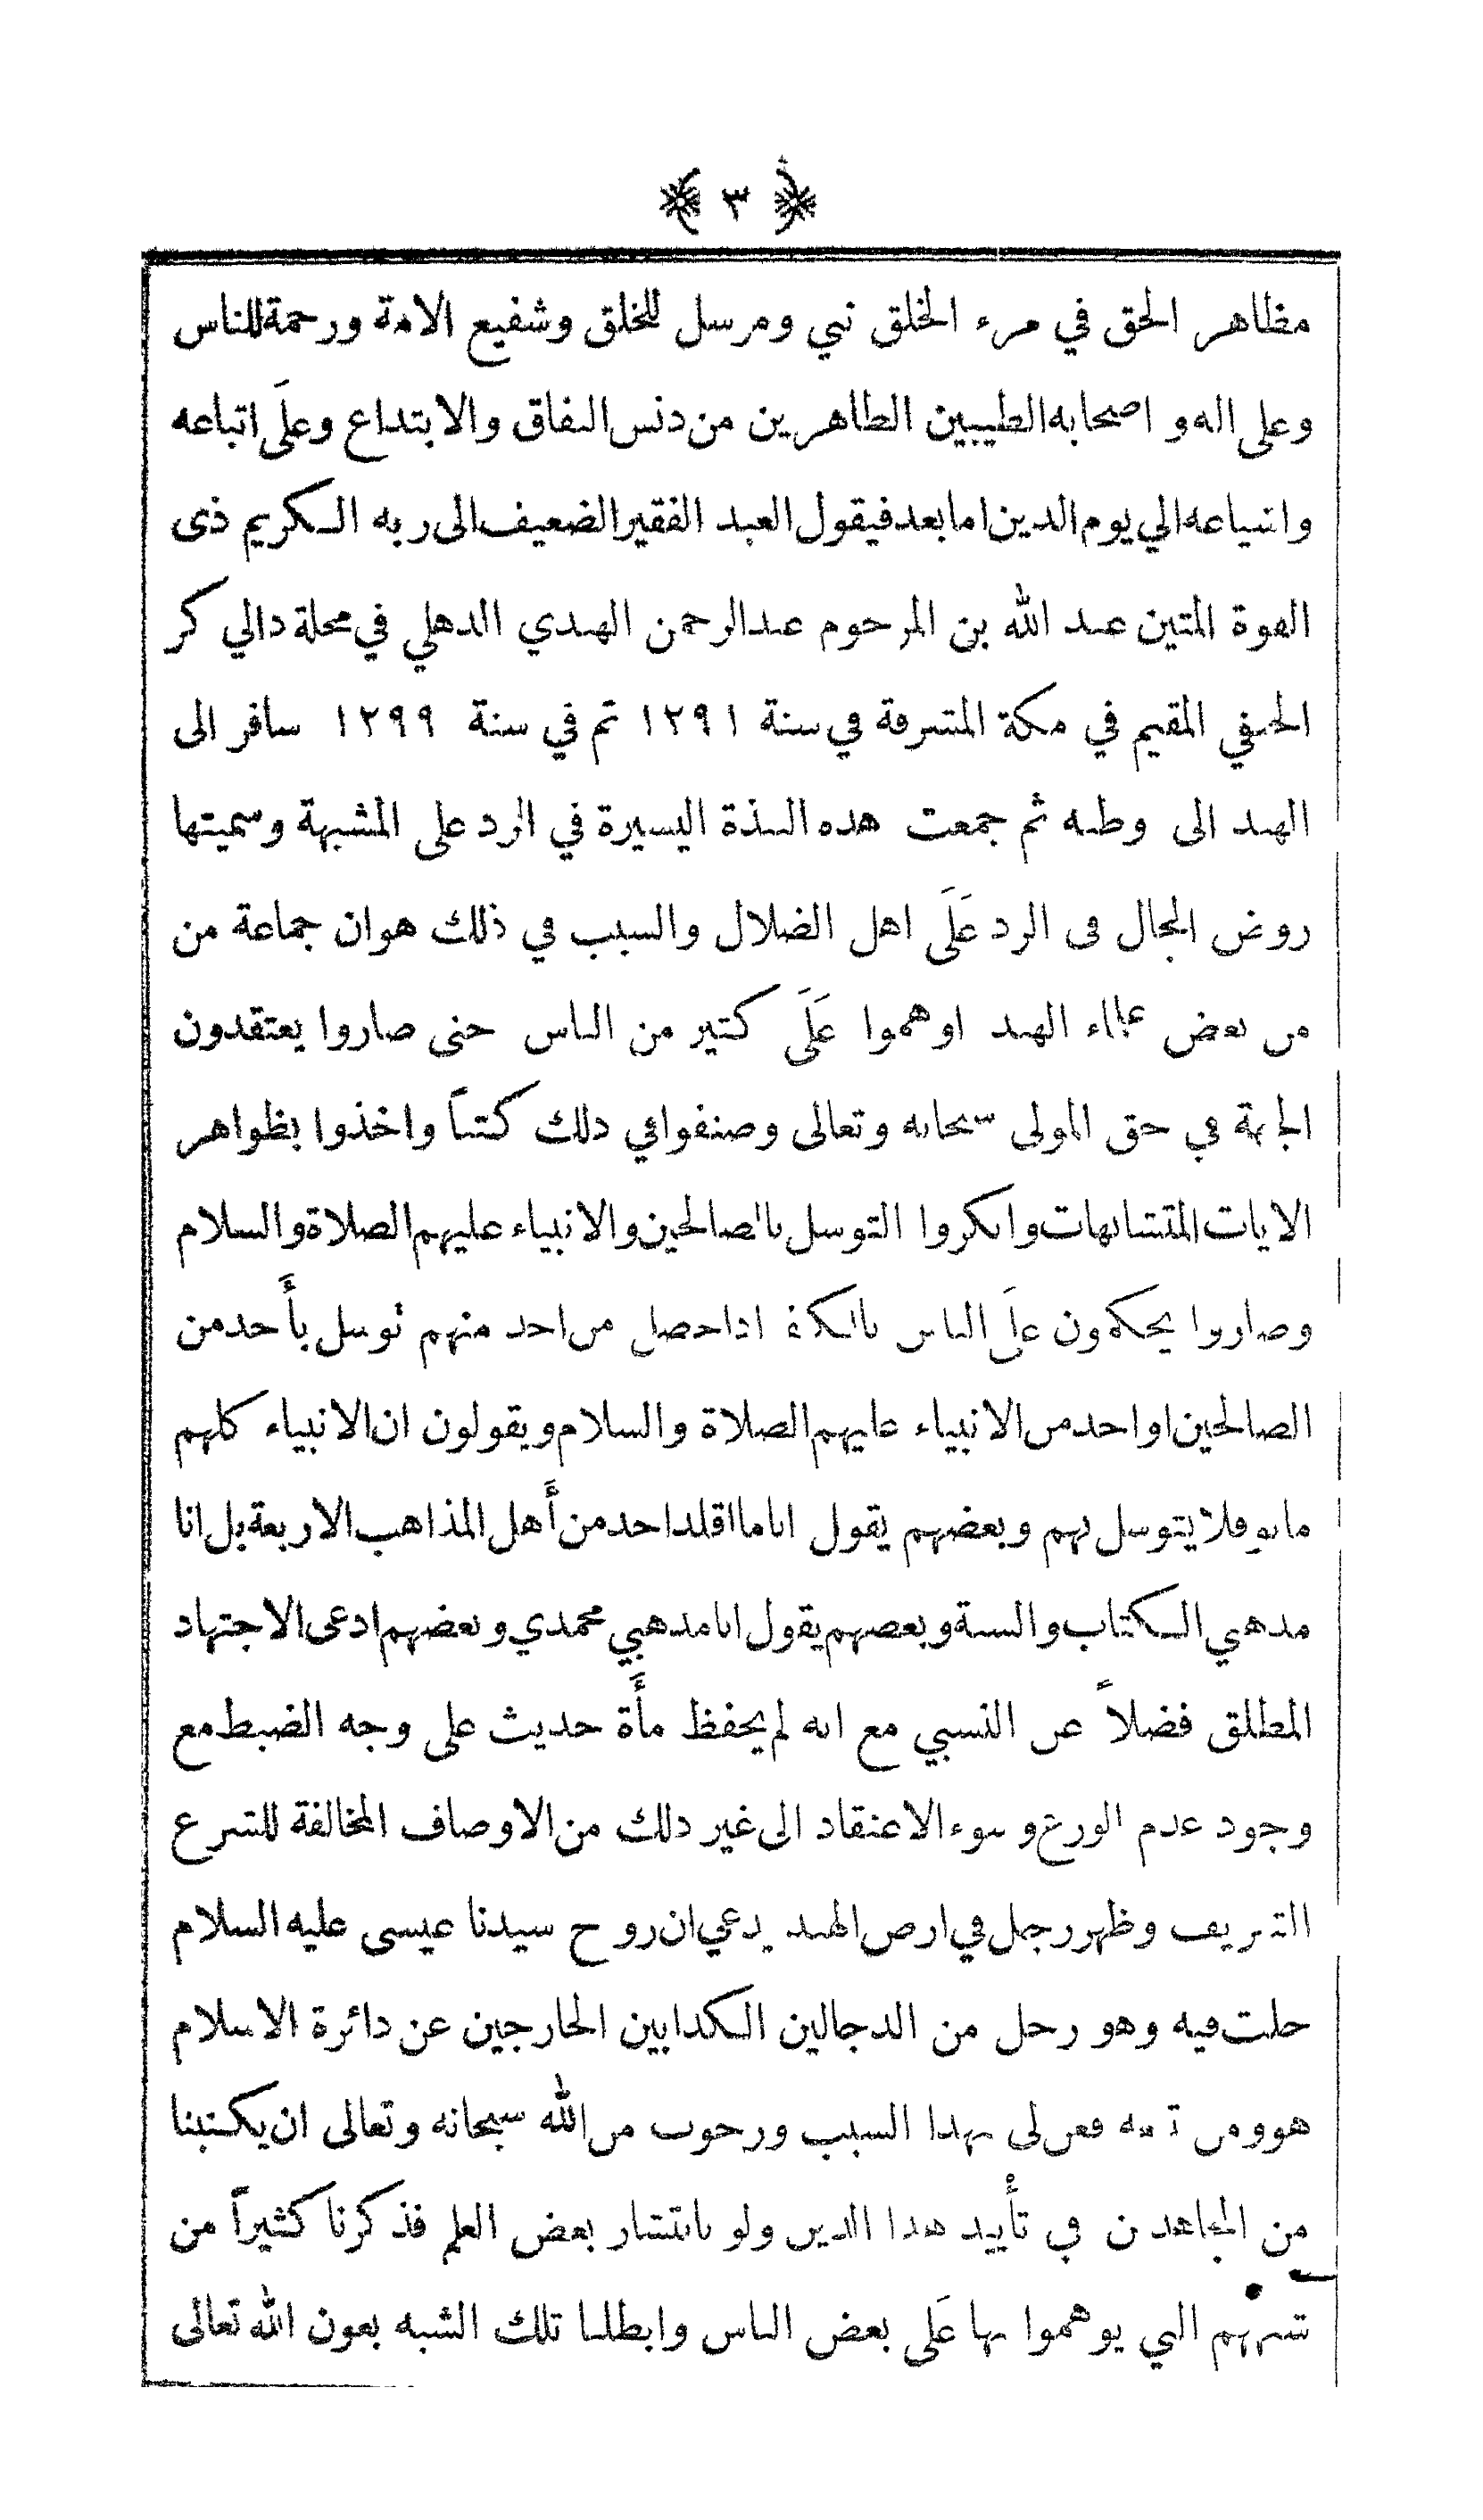 ﴿ ٣ ﴾
مظاهر الحق في مرء الخلق نبي ومرسل للخلق وشفيع الامة ورحمة للناس
وعلى اله و اصحابه الطيبين الطاهرين من دنس النفاق والابتداع وعلَى اتباعه
واشياعه الي يوم الدين اما بعد فيقول العبد الفقير الضعيف الى ربه الكريم ذى
القوة المتين عبد الله بن المرحوم عبد الرحمن الهندي الدهلي في محلة دالي كر
الحنفي المقيم في مكة المشرفة في سنة ١٢٩١ ثم في سنة ١٢٩٩ سافر الى
الهند الى وطنه ثم جمعت هذه النبذة اليسيرة في الرد على المشبهة وسميتها
روض المجال فى الرد عَلَى اهل الضلال والسبب في ذلك هو ان جماعة من
من بعض علماء الهند اوهموا عَلَى كثير من الناس حتى صاروا يعتقدون
الجهة في حق المولى سبحانه وتعالى وصنفوا في ذلك كتباً واخذوا بظواهر
الايات المتشابهات وانكروا التوسل بالصالحين والانبياء عليهم الصلاة والسلام
وصاروا يحكمون علَى الناس بالكفر اذا حصل من احد منهم توسل بأَحد من
الصالحين او احد من الانبياء عليهم الصلاة والسلام ويقولون ان الانبياء كلهم
ماتوا فلا يتوسل بهم وبعضهم يقول انا ما اقلد احد من أَهل المذاهب الاربعة بل انا
مذهبي الكتاب والسنة وبعضهم يقول انا مذهبي محمدي وبعضهم ادعى الاجتهاد
المطلق فضلاً عن النسبي مع انه لم يحفظ مأَة حديث على وجه الضبط مع
وجود عدم الورع وسوء الاعتقاد الى غير ذلك من الاوصاف المخالفة للشرع
الشريف وظهر رجل في ارض الهند يدعي ان روح سيدنا عيسى عليه السلام
حلت فيه وهو رجل من الدجالين الكذابين الخارجين عن دائرة الاسلام
هو ومن تبعه فعن لى بهذا السبب ورجوت من الله سبحانه وتعالى ان يكتبنا
من المجاهدين في تأييد هذا الدين ولو بانتشار بعض العلم فذكرنا كثيراً من
شبههم التي يوهموا بها عَلى بعض الناس وابطلنا تلك الشبه بعون الله تعالى